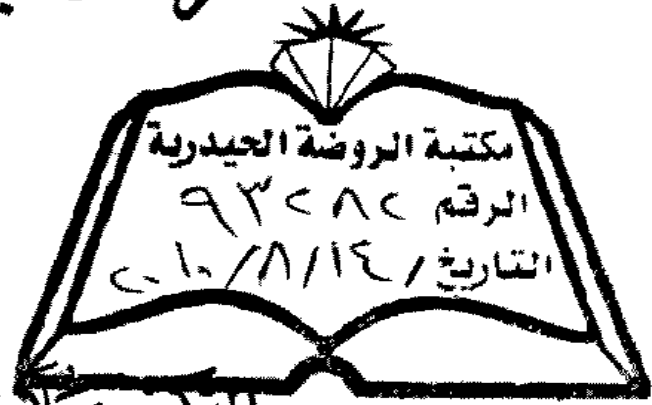 مكتبة الروضة الحيدرية
الرقم ٩٣٢٨٢
التاريخ / ١٤ / ٨ / ٢٠١٠